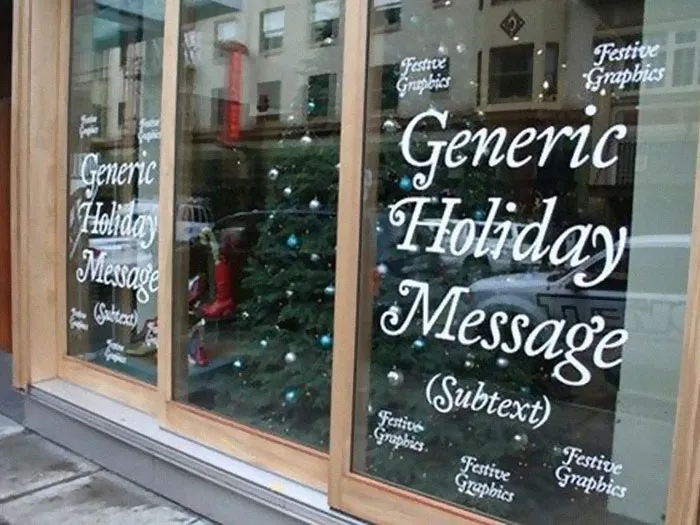 Festive
Graphics
Festive
Graphics
Generic
Holiday
Message
(Subtext)
Festive
Graphics
Festive
Graphics
Festive
Graphics
Festive
Graphics
Festive
Graphics
Generic
Holiday
Message
(Subtext)
Festive
Graphics
Festive
Graphics
Festive
Graphics